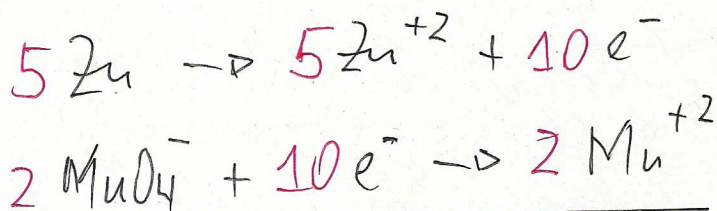 5 Zn → 5 Zn⁺² + 10 e⁻
2 MnO₄⁻ + 10 e⁻ → 2 Mn⁺²